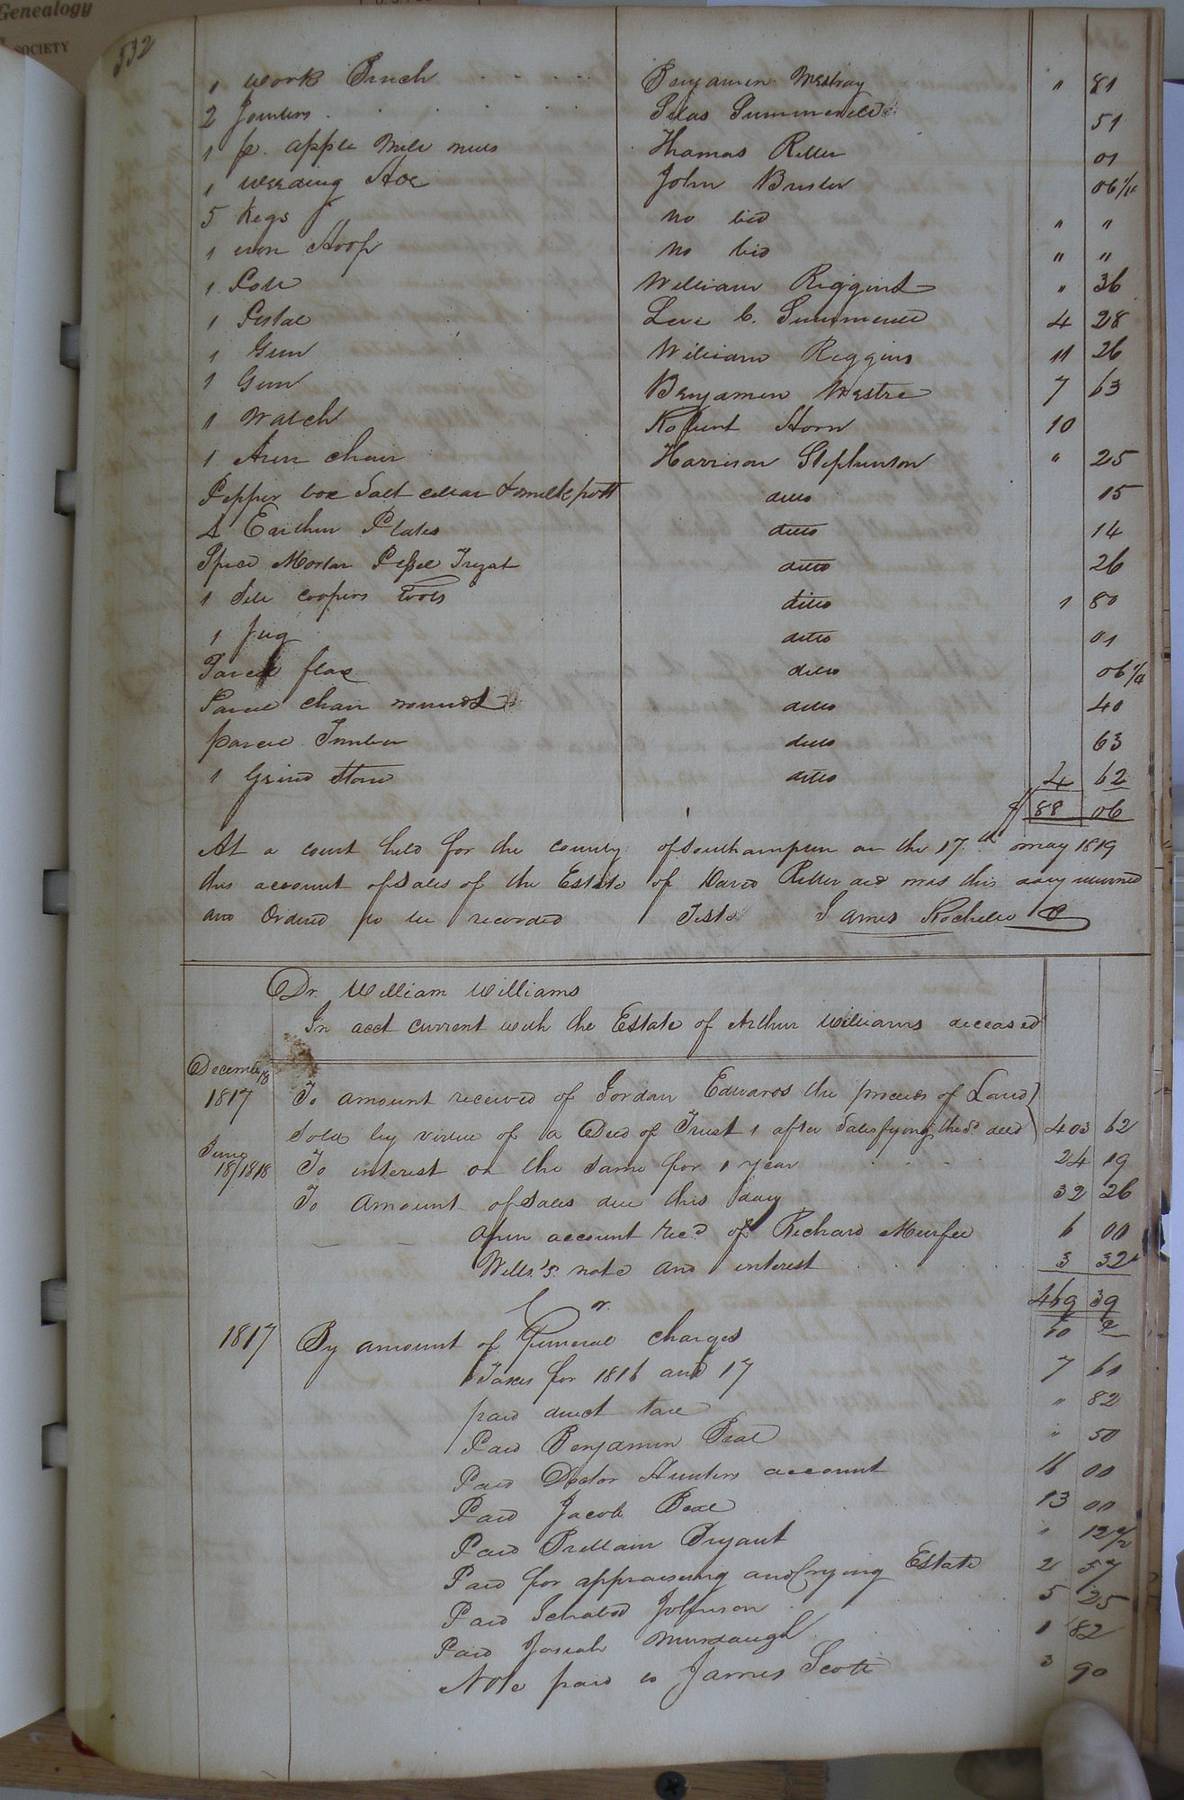 Genealogy
SOCIETY
532
1 work Bench Benjamin Westray " 81
2 Jointers Silas Summerell 51
1 pr. apple Mill nuts Thomas Ritter 01
1 weeding Hoe John Butler 06 1/4
5 Kegs no bid " "
1 iron Hoop no bid " "
1 William Riggins " 36
1 Pistal Levi C. Summerell 4 28
1 Gun William Riggins 11 26
1 Gun Benjamin Westre 7 63
1 Watch Robert Horn 10
1 Arm chair Harrison Stephenson " 25
Pepper box Salt cellar & milk pott ditto 15
4 Earthen Plates ditto 14
Spice Mortar Pessel ditto 26
1 Sett coopers tools ditto 1 80
1 Jug ditto 01
Parcel flax ditto 06 1/4
Parcel chair rounds ditto 40
parcel Timber ditto 63
1 Grind Stone ditto 4 62
$ 88 06
At a court held for the county of Southampton on the 17th may 1819
this account of Sales of the Estate of David Ritter decd was this day returned
and Ordered to be recorded Teste James Rochelle C
Dr. William Williams
In acct current with the Estate of Arthur Williams deceased
December 18
1817 To amount received of Jordan Edwards the proceeds of Land
Sold by virtue of a Deed of Trust, after Satisfying the Sd deed 403 62
June
18/1818 To interest on the same for 1 year 24 19
To amount of Sales due this day 32 26
open account recd of Richard Murfee 6 00
Wells's note and interest 3 32
469 39
Cr.
1817 By amount of funeral charges 10
Taxes for 1816 and 17 7 61
paid direct tax " 82
Paid Benjamin Beal " 50
Paid Doctor Hunters account 16 00
Paid Jacob Beal 13 00
Paid Bryant " 12 1/2
Paid for appraising and Crying Estate 2 57
Paid Johnson 5 25
Paid Josiah Murdaugh 1 82
Note paid to James Scott 3 90